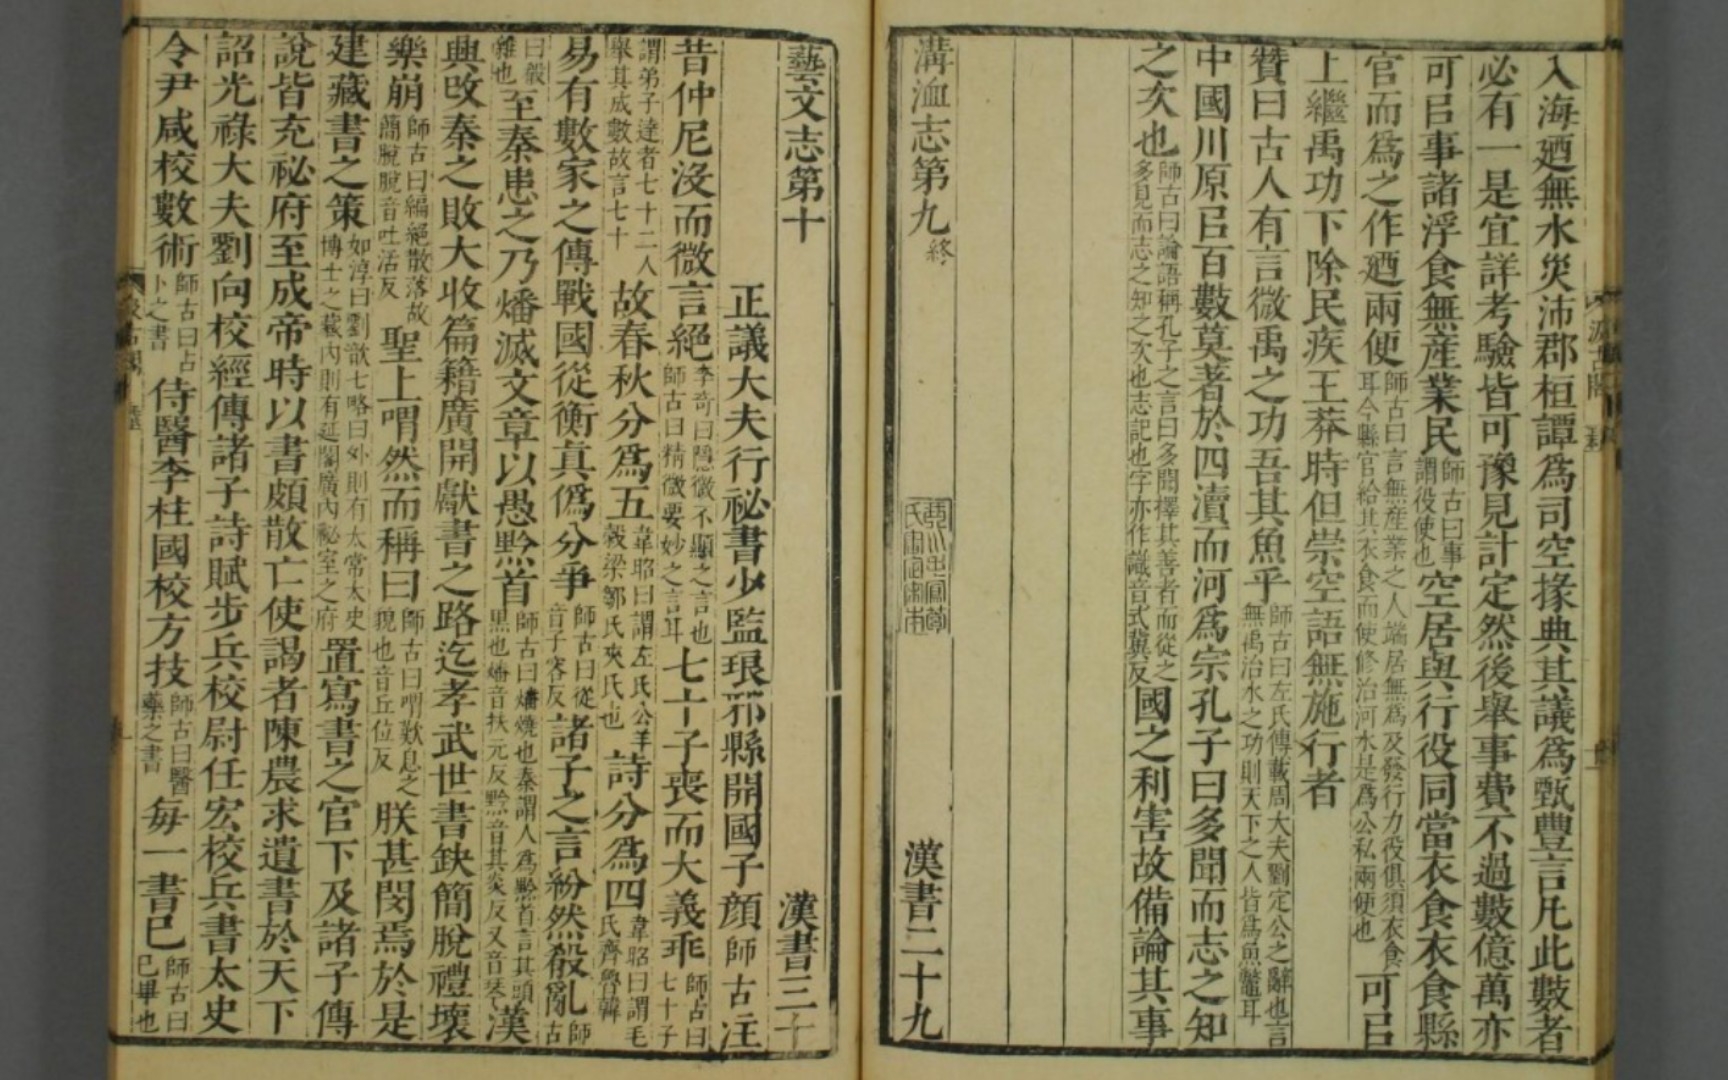 入海廼無水災沛郡桓譚爲司空掾典其議爲甄豐言凡此數者
必有一是宜詳考驗皆可豫見計定然後舉事費不過數億萬亦
可㠯事諸浮食無産業民師古曰事謂役使也空居與行役同當衣食衣食縣
官而爲之作廼兩便師古曰言無産業之人端居無爲及發行力役俱須衣食耳今縣官給其衣食而使修治河水是爲公私兩便也可㠯
上繼禹功下除民疾王莽時但崇空語無施行者
贊曰古人有言微禹之功吾其魚乎師古曰左氏傳載周大夫劉定公之辭也言無禹治水之功則天下之人皆爲魚鼈耳
中國川原㠯百數莫著於四瀆而河爲宗孔子曰多聞而志之知
之次也師古曰論語稱孔子之言曰多聞擇其善者而從之多見而志之知之次也志記也字亦作識音式冀反國之利害故備論其事
溝洫志第九終 漢書二十九
藝文志第十 漢書三十
正議大夫行祕書少監琅邪縣開國子顏師古注
昔仲尼沒而微言絕李奇曰隱微不顯之言也師古曰精微要妙之言耳七十子喪而大義乖師古曰七十子
謂弟子達者七十二人舉其成數故言七十故春秋分爲五韋昭曰謂左氏公羊穀梁鄒氏夾氏也詩分爲四韋昭曰謂毛氏齊魯韓
易有數家之傳戰國從衡眞僞分爭師古曰從音子容反諸子之言紛然殽亂師古
曰殽雜也至秦患之乃燔滅文章以愚黔首師古曰燔燒也秦謂人爲黔首言其頭黑也燔音扶元反黔音其炎反又音琴漢
興改秦之敗大收篇籍廣開獻書之路迄孝武世書缺簡脫禮壞
樂崩師古曰編絕散落故簡脫脫音吐活反聖上喟然而稱曰師古曰喟歎息之貌也音丘位反朕甚閔焉於是
建藏書之策如淳曰劉歆七略曰外則有太常太史博士之藏內則有延閣廣內祕室之府置寫書之官下及諸子傳
說皆充祕府至成帝時以書頗散亡使謁者陳農求遺書於天下
詔光祿大夫劉向校經傳諸子詩賦步兵校尉任宏校兵書太史
令尹咸校數術師古曰占卜之書侍醫李柱國校方技師古曰醫藥之書每一書已師古曰已畢也